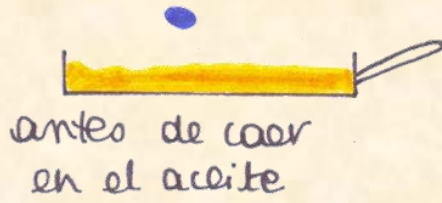 antes de caer
en el aceite